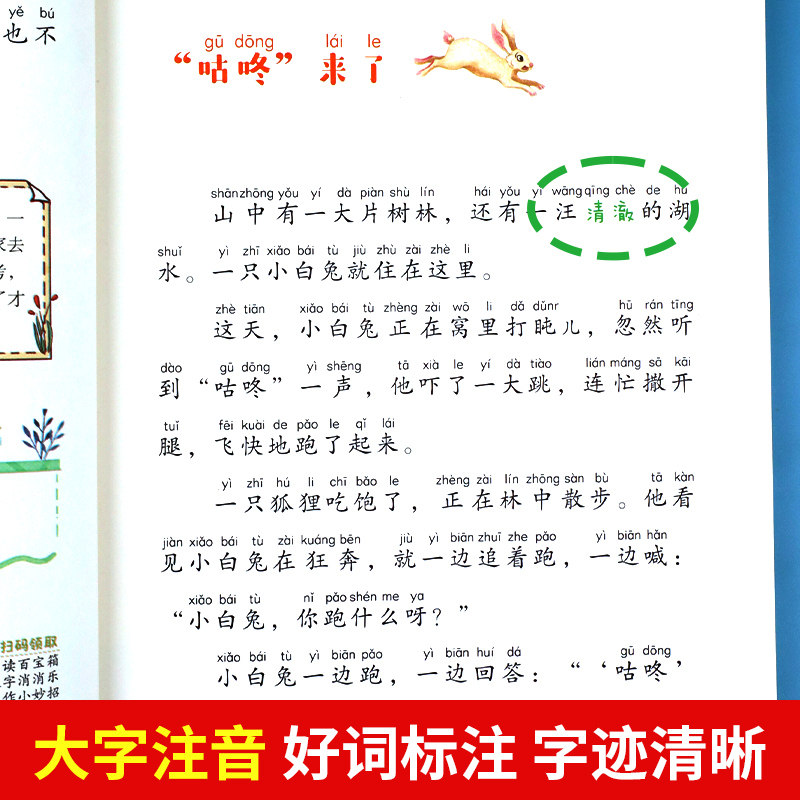 yě bú
也不
一
家去
考，
了才
扫码领取
读百宝箱
字消消乐
作小妙招
gū dōng lái le
“咕咚”来了
shānzhōng yǒu yí dà piàn shù lín hái yǒu yì wāng qīng chè de hú
山中有一大片树林，还有一汪清澈的湖
shuǐ yì zhī xiǎo bái tù jiù zhù zài zhè li
水。一只小白兔就住在这里。
zhè tiān xiǎo bái tù zhèng zài wō li dǎ dǔnr hū rán tīng
这天，小白兔正在窝里打盹儿，忽然听
dào gū dōng yì shēng tā xià le yí dà tiào lián máng sā kāi
到“咕咚”一声，他吓了一大跳，连忙撒开
tuǐ fēi kuài de pǎo le qǐ lái
腿，飞快地跑了起来。
yì zhī hú li chī bǎo le zhèng zài lín zhōng sàn bù tā kàn
一只狐狸吃饱了，正在林中散步。他看
jiàn xiǎo bái tù zài kuáng bēn jiù yì biān zhuī zhe pǎo yì biān hǎn
见小白兔在狂奔，就一边追着跑，一边喊：
xiǎo bái tù nǐ pǎo shén me ya
“小白兔，你跑什么呀？”
xiǎo bái tù yì biān pǎo yì biān huí dá gū dōng
小白兔一边跑，一边回答：“‘咕咚’
大字注音 好词标注 字迹清晰